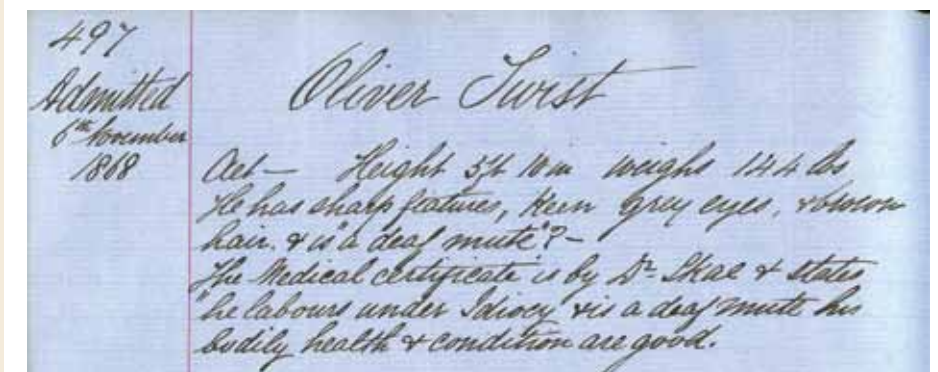 497
Admitted
6th November
1868
Oliver Twist
Aet — Height 5ft 10in weighs 144 lbs
He has sharp features, Keen grey eyes, & brown
hair. & is "a deaf mute"? —
The Medical certificate is by Dr. Skae & states
"he labours under Idiocy & is a deaf mute his
bodily health & condition are good.